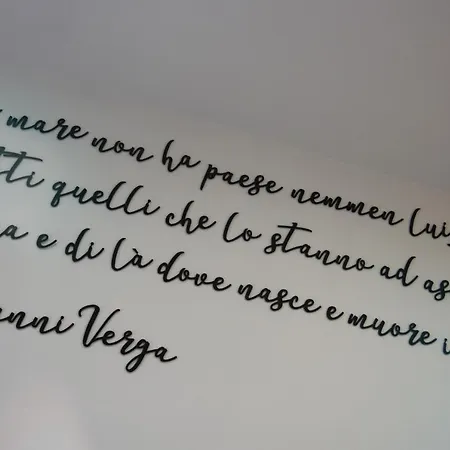 mare non ha paese nemmen lui,
tti quelli che lo stanno ad as
a e di là dove nasce e muore i
anni Verga